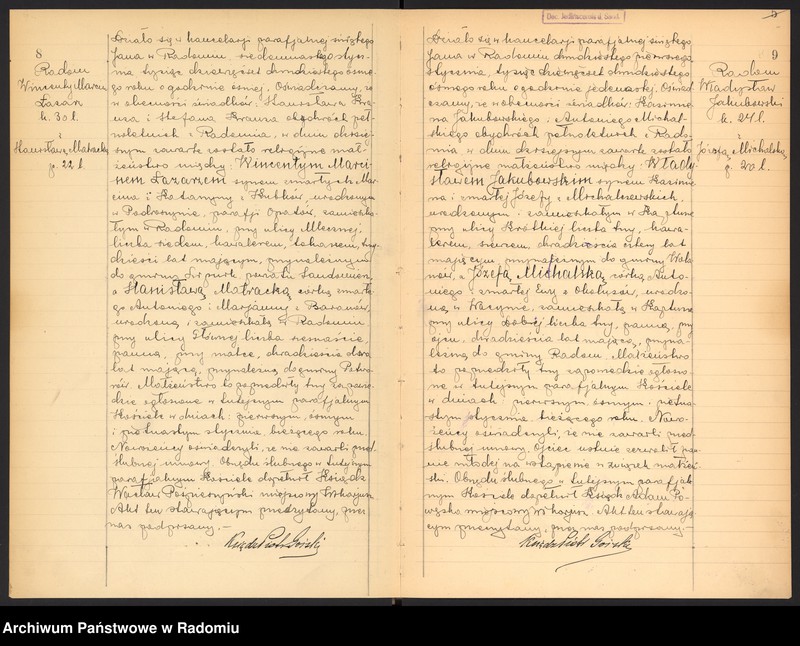 8
Radom
Wincenty Marcin
Łazarz
k. 30 l.
i
Stanisława Matracka
p. 22 l.
Działo się w kancelarji parafjalnej świętego
Jana w Radomiu siedemnastego stycz-
nia tysiąc dziewięćset dwudziestego ósme-
go roku o godzinie ósmej. Oświadczamy, że
w obecności świadków: Stanisława
i Stefana obydwóch peł-
noletnich z Radomia, w dniu dzisiej-
szym zawarte zostało religijne mał-
żeństwo między: Wincentym Marci-
nem Łazarzem synem zmarłych Mar-
cina i Katarzyny z urodzonym
w parafji Opatów, zamieszka-
łym w Radomiu, przy ulicy Mlecznej,
liczba siedem, kawalerem, trzy-
dzieści lat mającym, przynależnym
do gminy powiatu Sandomierz,
a Stanisławą Matracką córką zmarłe-
go Antoniego i Marjanny z Baranów,
urodzoną i zamieszkałą w Radomiu
przy ulicy Głównej liczba
panną, przy matce, dwadzieścia dwa
lat mającą, przynależną do gminy
Małżeństwo to poprzedziły trzy zapowie-
dzie ogłoszone w tutejszym parafjalnym
Kościele w dniach: pierwszym, ósmym
i piętnastym stycznia bieżącego roku.
Nowożeńcy oświadczyli, że nie zawarli przed-
ślubnej umowy. Obrzędu ślubnego w tutejszym
parafjalnym Kościele dopełnił Ksiądz
Wacław miejscowy Wikarjusz.
Akt ten stawającym przeczytany, przez
nas podpisany.—
Ksiądz Piotr Górski
Dec. Jedlaczenia d. Sand.
5
9
Radom
Władysław
Jakubowski
k. 24 l.
i
Józefa Michalska
p. 20 l.
Działo się w kancelarji parafjalnej świętego
Jana w Radomiu dwudziestego pierwszego
stycznia, tysiąc dziewięćset dwudziestego
ósmego roku o godzinie jedenastej. Oświad-
czamy, że w obecności świadków: Kazimie-
rza Jakubowskiego i Antoniego Michal-
skiego obydwóch pełnoletnich z Rado-
mia w dniu dzisiejszym zawarte zostało
religijne małżeństwo między: Włady-
sławem Jakubowskim synem Kazimie-
rza i zmarłej Józefy z Michalszewskich,
urodzonym i zamieszkałym w
przy ulicy Krótkiej liczba trzy, kawa-
lerem, dwadzieścia cztery lat
mającym, przynależnym do gminy
a Józefą Michalską córką Anto-
niego i zmarłej Ewy z urodzo-
ną w Wacynie, zamieszkałą w Kapturze
przy ulicy Dobrej liczba trzy, panną, przy
ojcu, dwadzieścia lat mającą, przyna-
leżną do gminy Radom. Małżeństwo
to poprzedziły trzy zapowiedzie ogłoszo-
ne w tutejszym parafjalnym Kościele
w dniach: pierwszym, ósmym i piętna-
stym stycznia bieżącego roku. Nowo-
żeńcy oświadczyli, że nie zawarli przed-
ślubnej umowy. Ojciec ustnie zezwolił pan-
nie młodej na wstąpienie w związek małżeń-
ski. Obrzędu ślubnego w tutejszym parafjal-
nym Kościele dopełnił Ksiądz Adam
miejscowy Wikarjusz. Akt ten stawają-
cym przeczytany, przez nas podpisany.—
Ksiądz Piotr Górski
Archiwum Państwowe w Radomiu